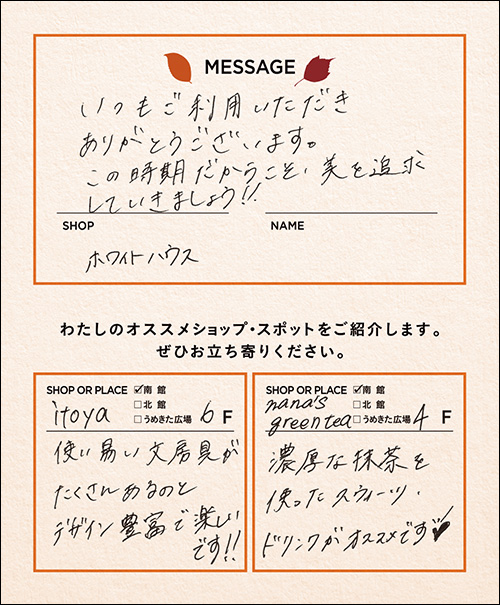 MESSAGE
いつもご利用いただき
ありがとうございます。
この時期だからこそ、美を追求
していきましょう!!
SHOP
NAME
ホワイトハウス
わたしのオススメショップ・スポットをご紹介します。
ぜひお立ち寄りください。
SHOP OR PLACE ☑南館
□北館
itoya □うめきた広場 6 F
使い易い文房具が
たくさんあるのと
デザイン豊富で楽しい
です!!
SHOP OR PLACE ☑南館
nana's □北館
green tea □うめきた広場 4 F
濃厚な抹茶を
使ったスウィーツ・
ドリンクがオススメです♥